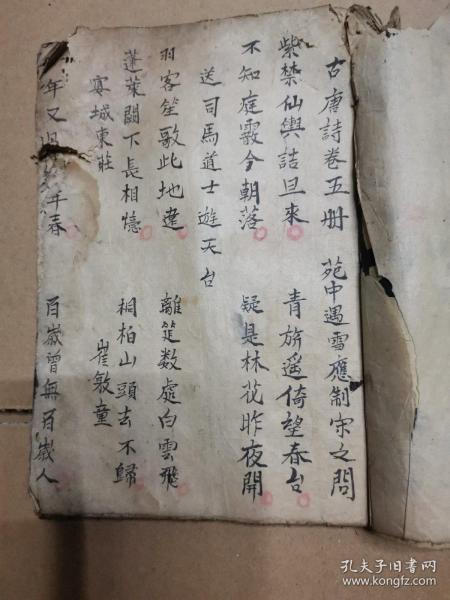 古唐詩卷五册 苑中遇雪應制宋之問
紫禁仙輿詰旦來 青旂遥倚望春台
不知庭霰今朝落 疑是林花昨夜開
送司馬道士遊天台
羽客笙歌此地違 離筵数處白雲飛
蓬萊闕下長相憶 桐柏山頭去不歸
宴城東莊 崔敏童
年又過 年春 百歲曾無百歲人
孔夫子旧书网
www.kongfz.com